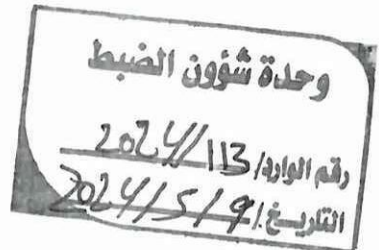 وحدة شؤون الضبط
رقم الوارد/ 113/2024
التاريخ/ 2024/5/9